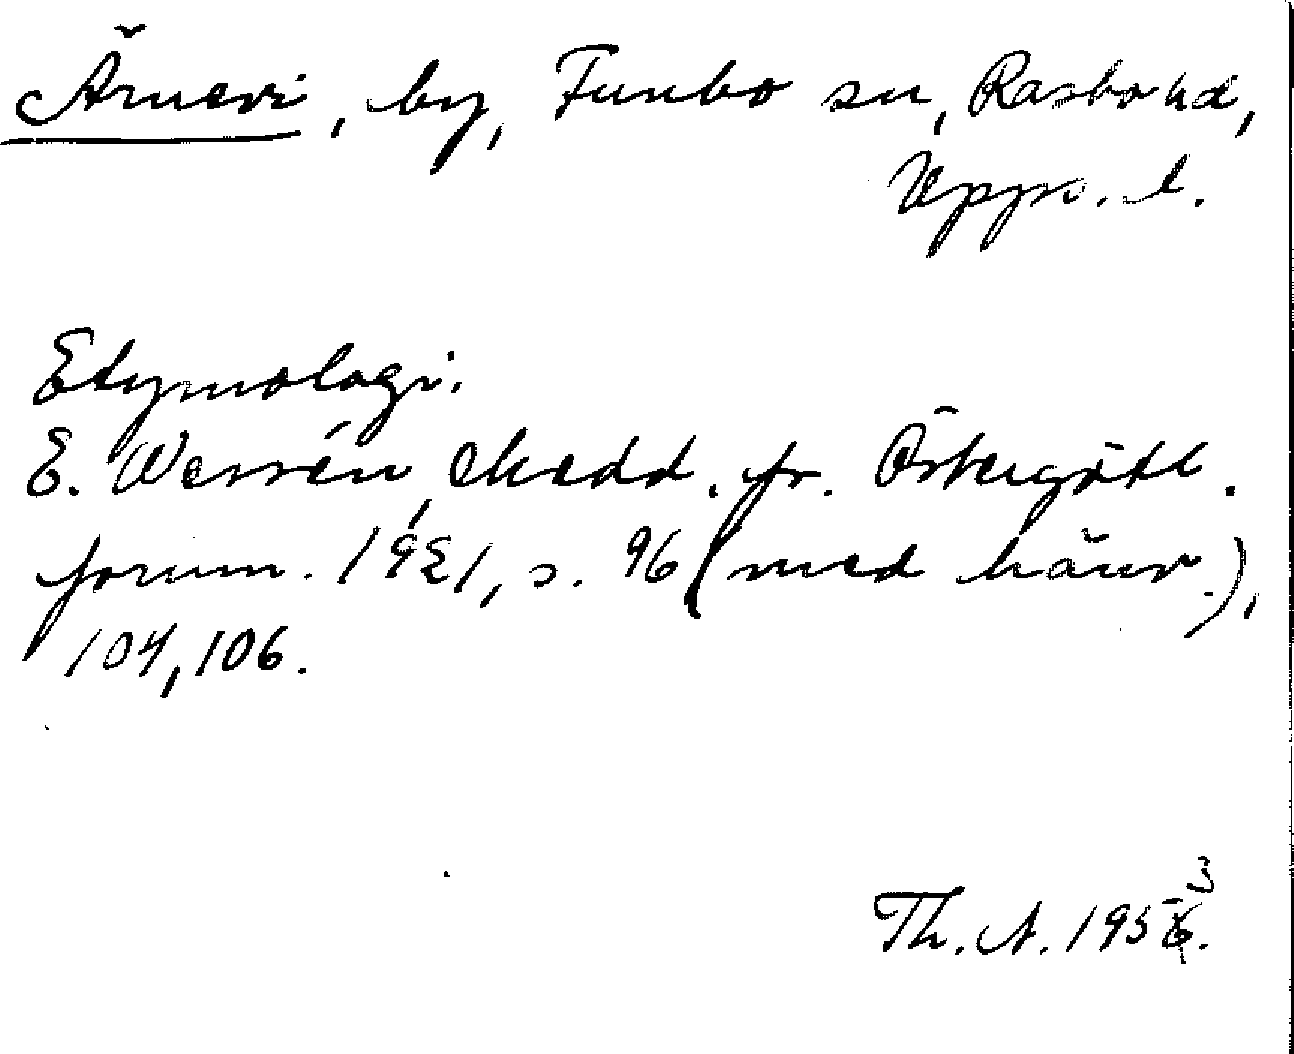 Ärnevi, by, Funbo sn, Rasbo hd,
Upps. l.
Etymologi.
E. Wessén, Medd. fr. Östergötl.
fornm. 1921, s. 96 (med hänv.),
104, 106.
Th. A. 1953.